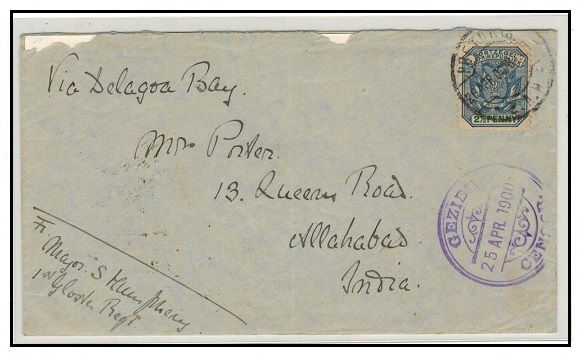 Via Delagoa Bay.
POSTZEGEL
2½ PENNY
PRETORIA
Mrs Porter.
13. Queens Road.
Allahabad.
India.
GEZIEN
25 APR. 1900
CENSOR
Fr. Major. S Humphery
1st Gloster Regt